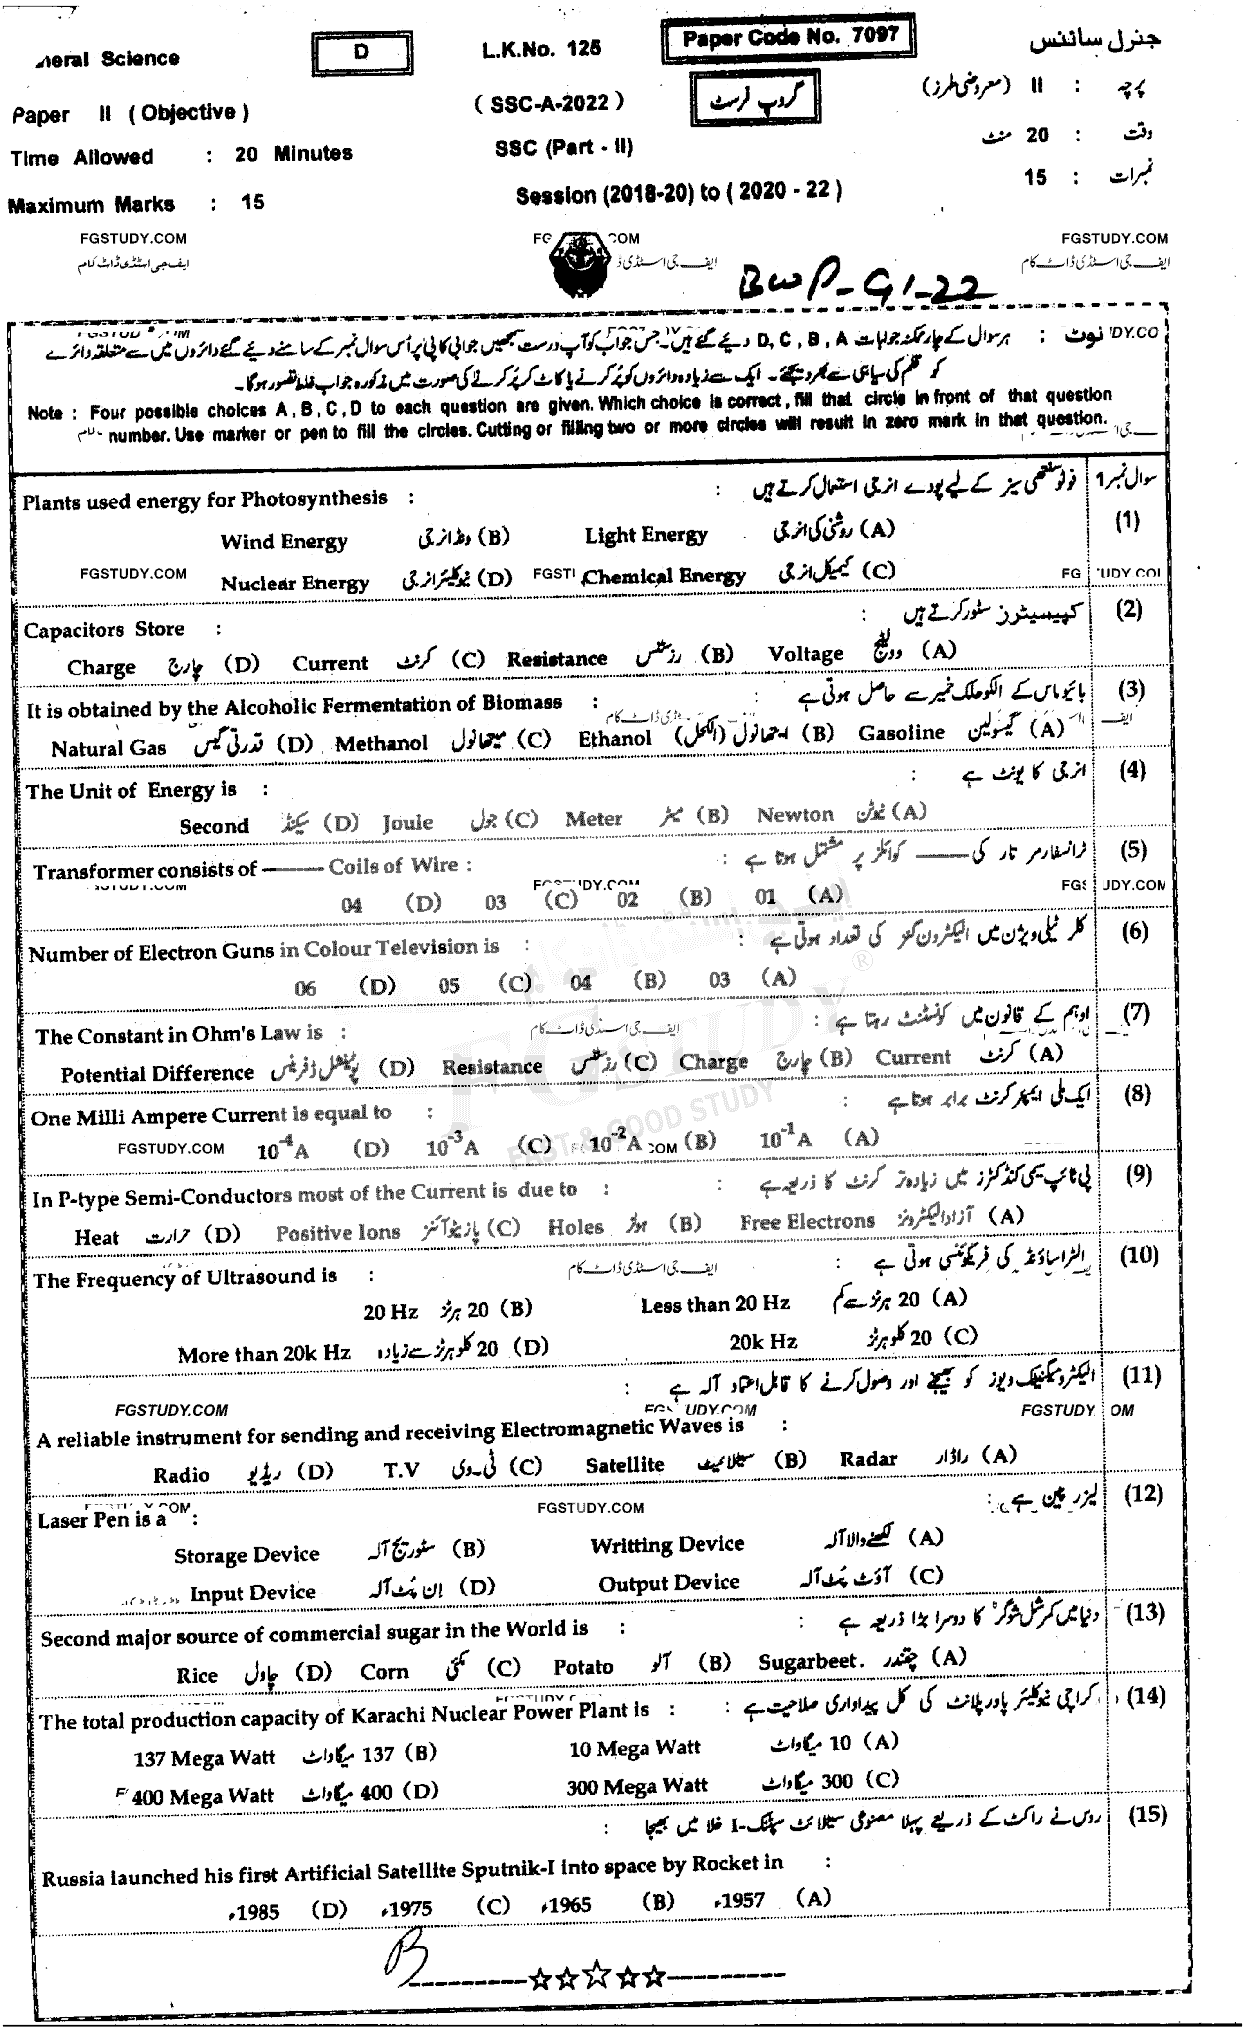 neral Science
D
L.K.No. 125
Paper Code No. 7097
جنرل سائنس
Paper II ( Objective )
( SSC-A-2022 )
گروپ فرسٹ
پرچہ : II (معروضی طرز)
Time Allowed : 20 Minutes
SSC (Part - II)
وقت : 20 منٹ
Maximum Marks : 15
Session (2018-20) to ( 2020 - 22 )
نمبرات : 15
FGSTUDY.COM
FG COM
FGSTUDY.COM
ایف جی اسٹڈی ڈاٹ کام
ایف جی اسٹڈی ڈ
ایف جی اسٹڈی ڈاٹ کام
BWP-G1-22
نوٹ : ہر سوال کے چار ممکنہ جوابات D, C, B, A دیئے گئے ہیں۔ جس جواب کو آپ درست سمجھیں جوابی کاپی پر اُس سوال نمبر کے سامنے دیئے گئے دائروں میں سے متعلقہ دائرے
کو قلم کی سیاہی سے بھر دیجئے۔ ایک سے زیادہ دائروں کو پُر کرنے یا کاٹ کر پُر کرنے کی صورت میں مذکورہ جواب غلط تصور ہوگا۔
Note : Four possible choices A, B, C, D to each question are given. Which choice is correct, fill that circle in front of that question
number. Use marker or pen to fill the circles. Cutting or filling two or more circles will result in zero mark in that question.
سوال نمبر 1
فوٹوسنتھی سیز کے لیے پودے انرجی استعمال کرتے ہیں :
Plants used energy for Photosynthesis :
(1)
Wind Energy ونڈ انرجی (B) Light Energy روشنی کی انرجی (A)
FGSTUDY.COM
Nuclear Energy نیوکلیئر انرجی (D) Chemical Energy کیمیکل انرجی (C)
کپیسیٹرز سٹور کرتے ہیں : (2)
Capacitors Store :
Charge چارج (D) Current کرنٹ (C) Resistance رزسٹنس (B) Voltage وولٹیج (A)
بائیوماس کے الکوحلک خمیر سے حاصل ہوتی ہے : (3)
It is obtained by the Alcoholic Fermentation of Biomass :
Natural Gas قدرتی گیس (D) Methanol میتھانول (C) Ethanol ایتھانول (الکحل) (B) Gasoline گیسولین (A)
انرجی کا یونٹ ہے : (4)
The Unit of Energy is :
Second سیکنڈ (D) Joule جول (C) Meter میٹر (B) Newton نیوٹن (A)
ٹرانسفارمر تار کی ——— کوائلز پر مشتمل ہوتا ہے : (5)
Transformer consists of ——— Coils of Wire :
04 (D) 03 (C) 02 (B) 01 (A)
کلر ٹیلی ویژن میں الیکٹرون گنز کی تعداد ہوتی ہے : (6)
Number of Electron Guns in Colour Television is :
06 (D) 05 (C) 04 (B) 03 (A)
FGSTUDY ®
FAST & GOOD STUDY
اوہم کے قانون میں کونسٹنٹ رہتا ہے : (7)
The Constant in Ohm's Law is :
ایف جی اسٹڈی ڈاٹ کام
Potential Difference پوٹینشل ڈفرینس (D) Resistance رزسٹنس (C) Charge چارج (B) Current کرنٹ (A)
ایک ملی ایمپئر کرنٹ برابر ہوتا ہے : (8)
One Milli Ampere Current is equal to :
FGSTUDY.COM
10⁻⁴A (D) 10⁻³A (C) 10⁻²A (B) 10⁻¹A (A)
پی ٹائپ سیمی کنڈکٹرز میں زیادہ تر کرنٹ کا ذریعہ ہے : (9)
In P-type Semi-Conductors most of the Current is due to :
Heat حرارت (D) Positive Ions پازیٹو آئنز (C) Holes ہولز (B) Free Electrons آزاد الیکٹرونز (A)
الٹراساؤنڈ کی فریکوئنسی ہوتی ہے : (10)
The Frequency of Ultrasound is :
ایف جی اسٹڈی ڈاٹ کام
20 Hz 20 ہرٹز (B) Less than 20 Hz 20 ہرٹز سے کم (A)
More than 20k Hz 20 کلو ہرٹز سے زیادہ (D) 20k Hz 20 کلو ہرٹز (C)
الیکٹرومیگنیٹک ویوز کو بھیجنے اور وصول کرنے کا قابل اعتماد آلہ ہے : (11)
FGSTUDY.COM
FGSTUDY OM
A reliable instrument for sending and receiving Electromagnetic Waves is :
Radio ریڈیو (D) T.V ٹی۔وی (C) Satellite سیٹلائیٹ (B) Radar راڈار (A)
لیزر پین ہے : (12)
FGSTUDY.COM
Laser Pen is a :
Storage Device سٹوریج آلہ (B) Writting Device لکھنے والا آلہ (A)
Input Device اِن پُٹ آلہ (D) Output Device آؤٹ پُٹ آلہ (C)
دنیا میں کمرشل شوگر کا دوسرا بڑا ذریعہ ہے : (13)
Second major source of commercial sugar in the World is :
Rice چاول (D) Corn مکئی (C) Potato آلو (B) Sugarbeet. چقندر (A)
کراچی نیوکلیئر پاور پلانٹ کی کل پیداواری صلاحیت ہے : (14)
The total production capacity of Karachi Nuclear Power Plant is :
137 Mega Watt 137 میگاواٹ (B) 10 Mega Watt 10 میگاواٹ (A)
400 Mega Watt 400 میگاواٹ (D) 300 Mega Watt 300 میگاواٹ (C)
روس نے راکٹ کے ذریعے پہلا مصنوعی سیٹلائٹ سپٹنک-I خلا میں بھیجا : (15)
Russia launched his first Artificial Satellite Sputnik-I into space by Rocket in :
1985ء (D) 1975ء (C) 1965ء (B) 1957ء (A)
B